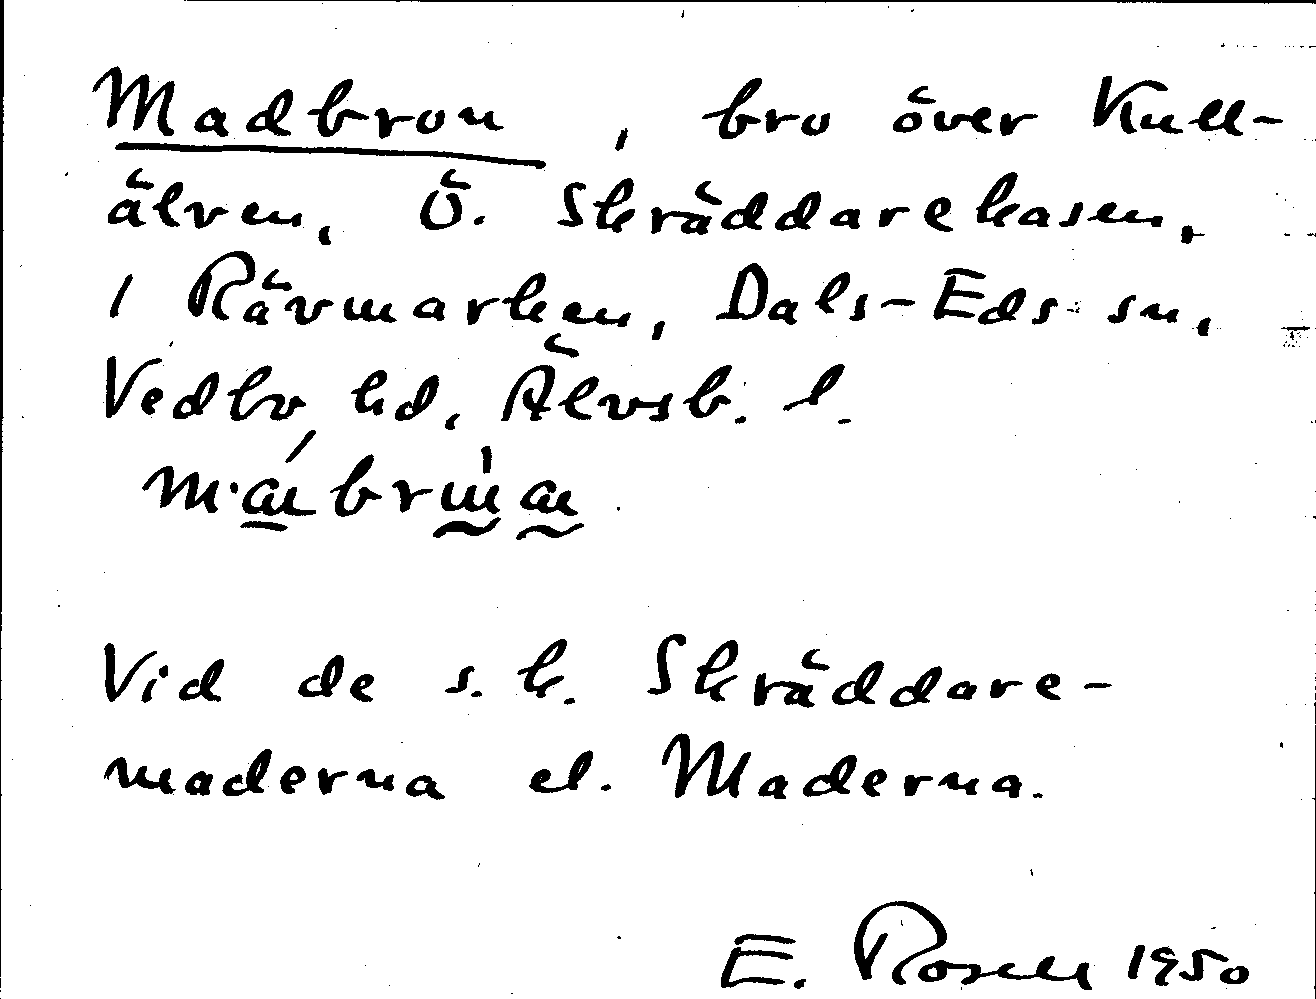 Madbron, bro över Kull-
älven, Ö. Skräddarekasen,
i Rävmarken, Dals-Eds sn,
Vedbo hd, Älvsb. l.
Vid de s.k. Skräddare-
maderna el. Maderna.
E. Rosell 1950